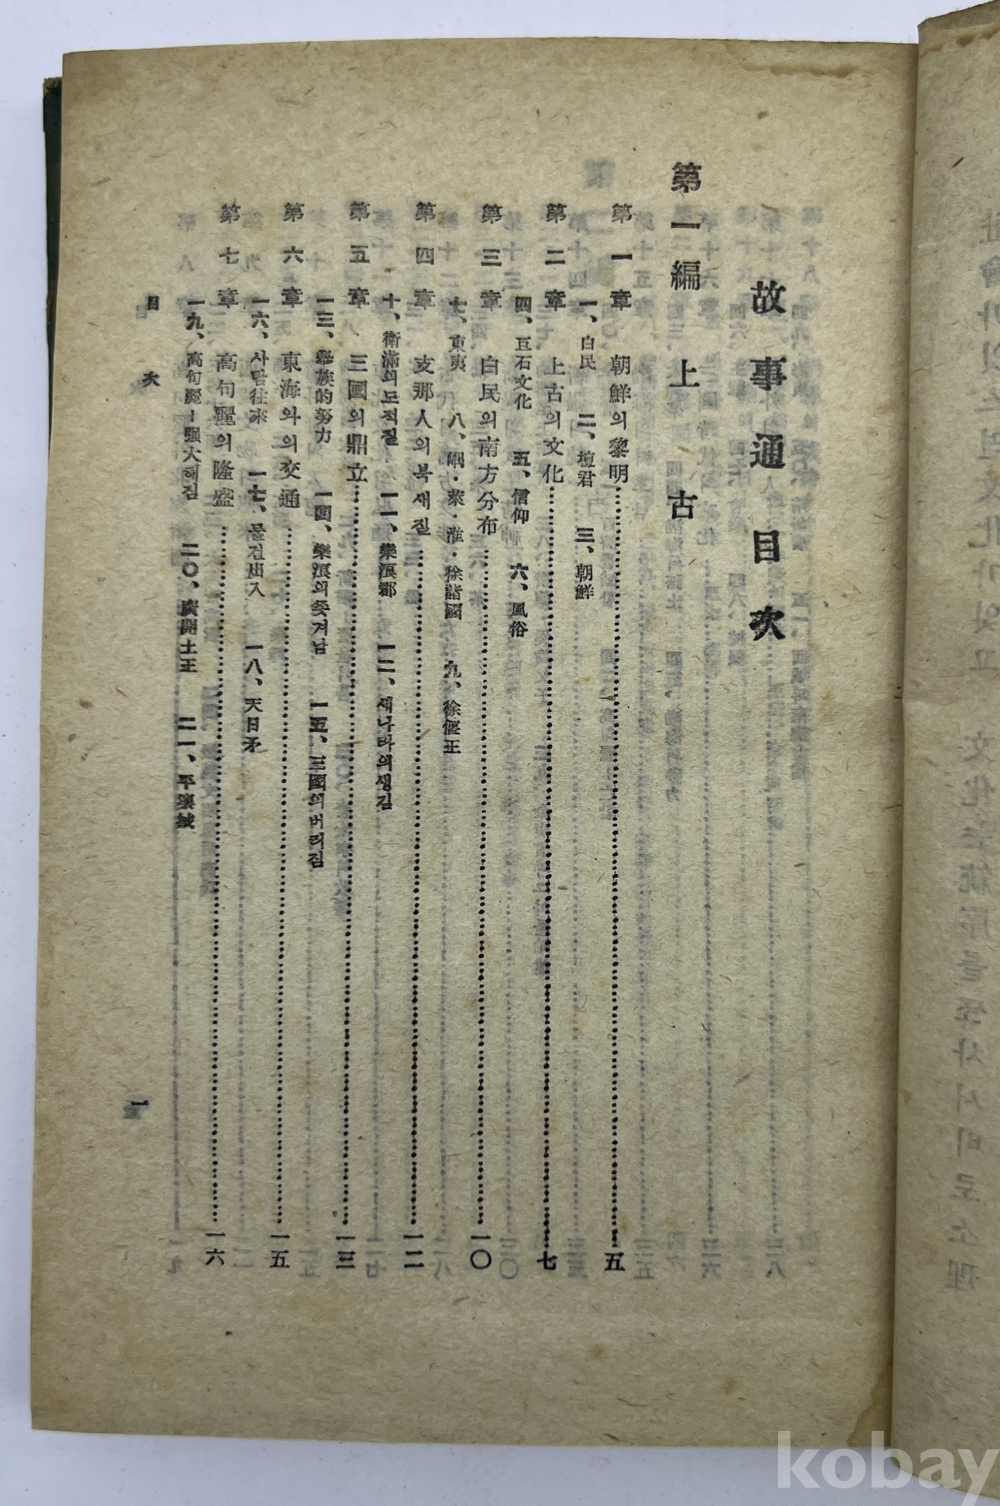 故事通目次
第一編 上古
第一章 朝鮮의黎明……五
一、白民 二、壇君 三、朝鮮
第二章 上古의文化……七
四、巨石文化 五、信仰 六、風俗
第三章 白民의南方分布……一〇
七、東夷 八、嵎・萊・淮・徐諸國 九、徐偃王
第四章 支那人의북새질……一二
十、衛滿의도적질 一一、樂浪郡 一二、새나라의생김
第五章 三國의鼎立……一三
一三、擧族的努力 一四、樂浪의쫓겨남 一五、三國의버러짐
第六章 東海와의交通……一五
一六、사람往來 一七、물건出入 一八、天日矛
第七章 高句麗의隆盛……一六
一九、高句麗ㅣ强大해짐 二〇、廣開土王 二一、平壤城
目次
一
kobay